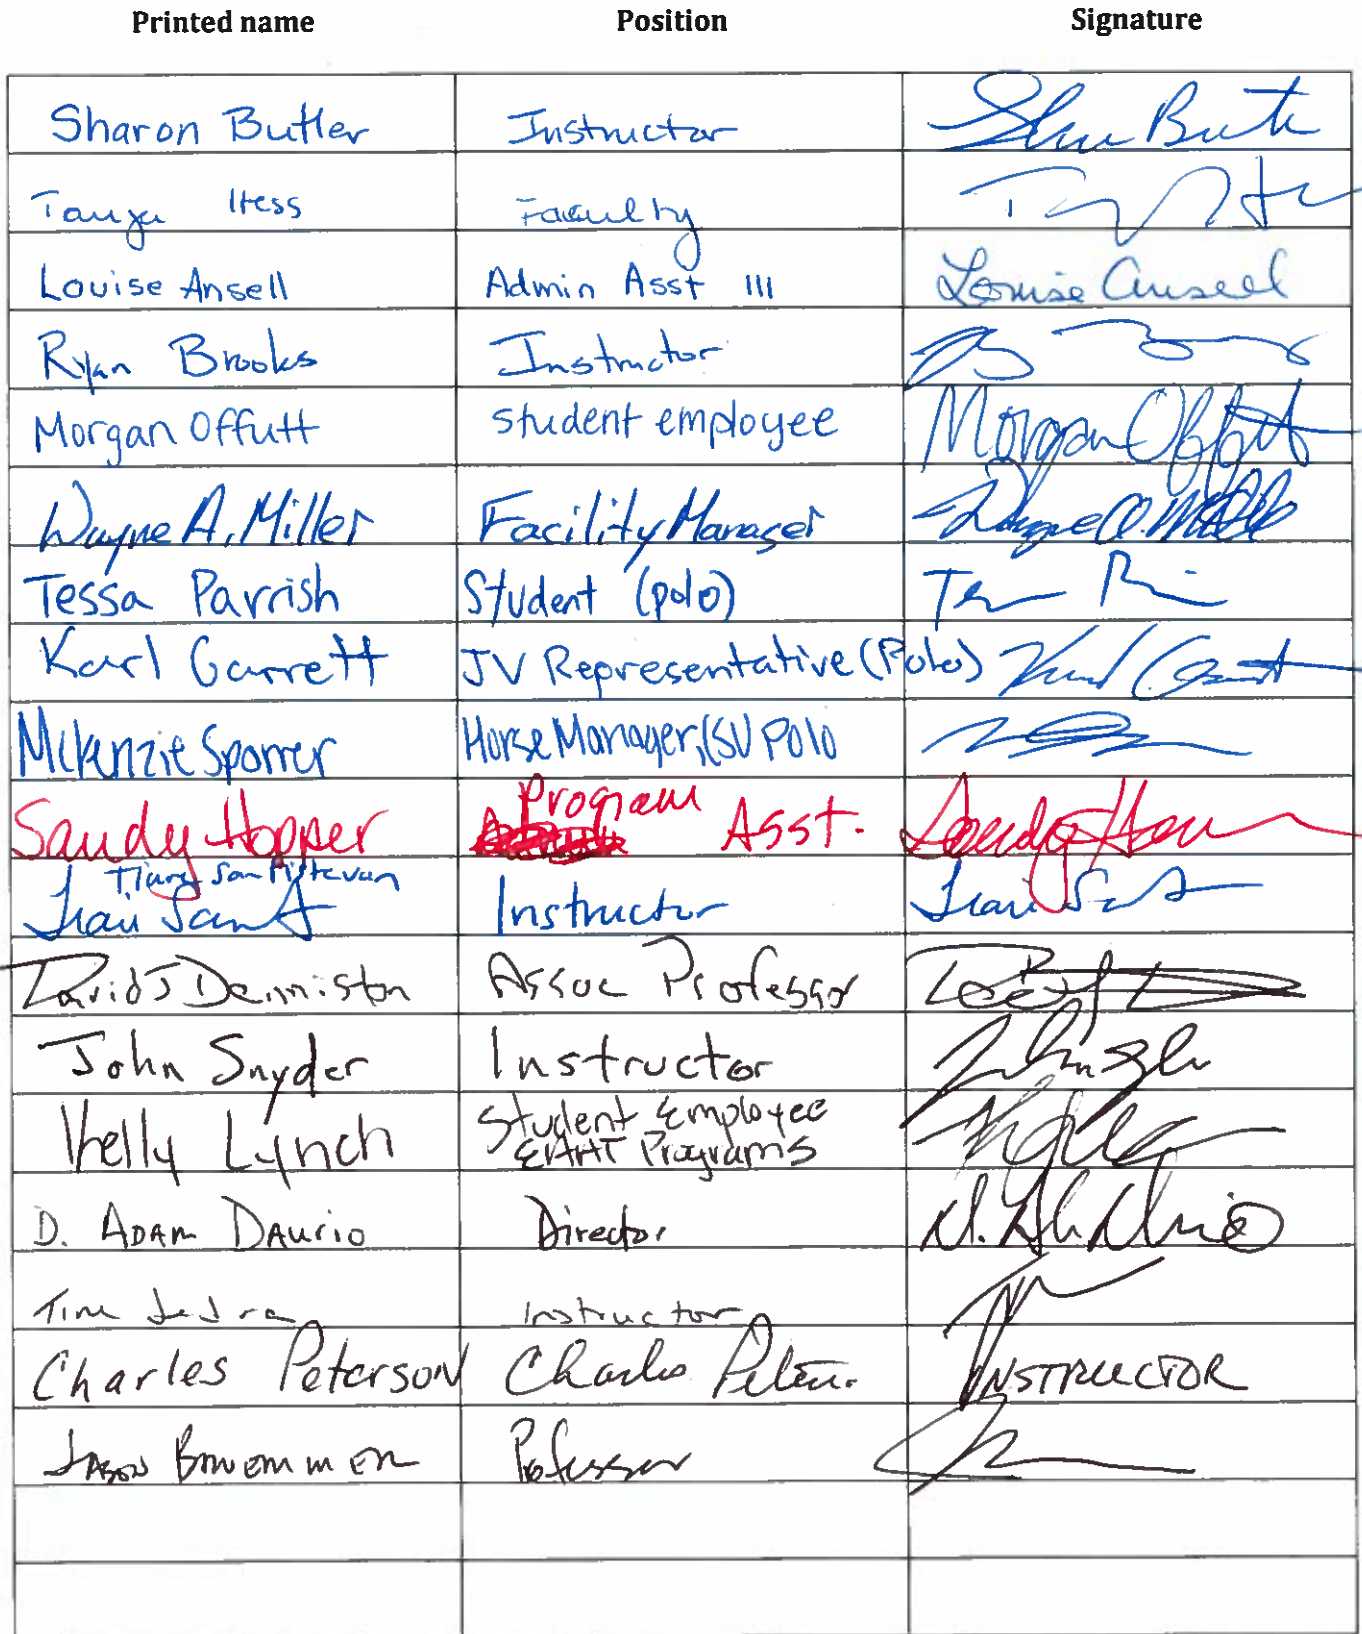 Printed name Position Signature
Sharon Butler Instructor Sharon Butler
Tanya Hess Faculty
Louise Ansell Admin Asst III Louise Ansell
Ryan Brooks Instructor
Morgan Offutt student employee Morgan Offutt
Wayne A. Miller Facility Manager Wayne A. Miller
Tessa Parrish Student (polo)
Karl Garrett JV Representative (Polo) Karl Garrett
McKenzie Sporrer Horse Manager, CSU Polo
Sandy Hopper Program Asst. Sandy Hopper
Instructor
David J Denniston Assoc Professor
John Snyder Instructor
Kelly Lynch Student Employee
Programs
D. Adam Daurio Director
Tim Instructor
Charles Peterson Charles Peterson Instructor
Jason Professor